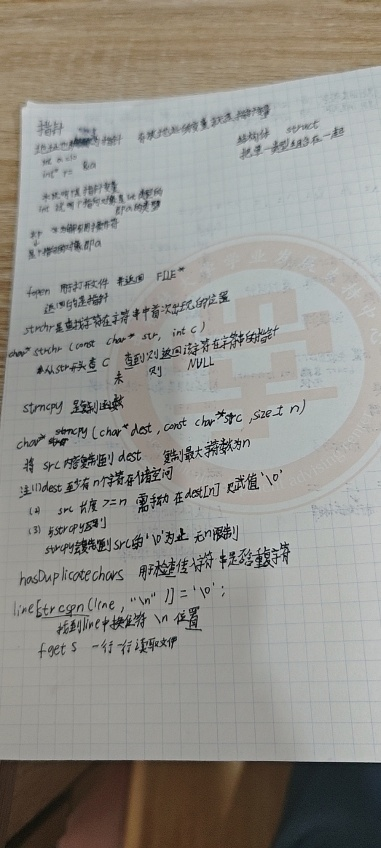 指针
存放地址的变量就是指针变量
结构体 struct
把单一类型组合在一起
int a=10
int* p= &a
*p
fopen 用于打开文件 并返回 FILE*
返回的是指针
strchr是查找字符在字符串中首次出现的位置
char* strchr (const char* str, int c)
从str开头查 C 查到则返回该字符在字符串的指针
未 则 NULL
strncpy 是复制函数
char* strncpy (char* dest, const char* src, size_t n)
将 src 内容复制到 dest 复制最大字符数为n
注(1)dest至少有n个字符存储空间
(2) src 长度 >=n 需手动 在dest[n] 处赋值'\0'
(3) 与strcpy区别
strcpy会复制到src的'\0'为止 无n限制
hasDuplicatechars 用于检查字符串是否重复字符
line[strcspn(line, "\n")] = '\0';
找到line中换行符 \n 位置
fgets 一行一行读取文件